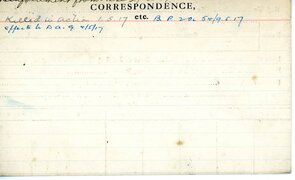 CORRESPONDENCE,
Killed in action 1.5.17 etc. B.P. 5.17
effects to D.A.G. 4/5/17